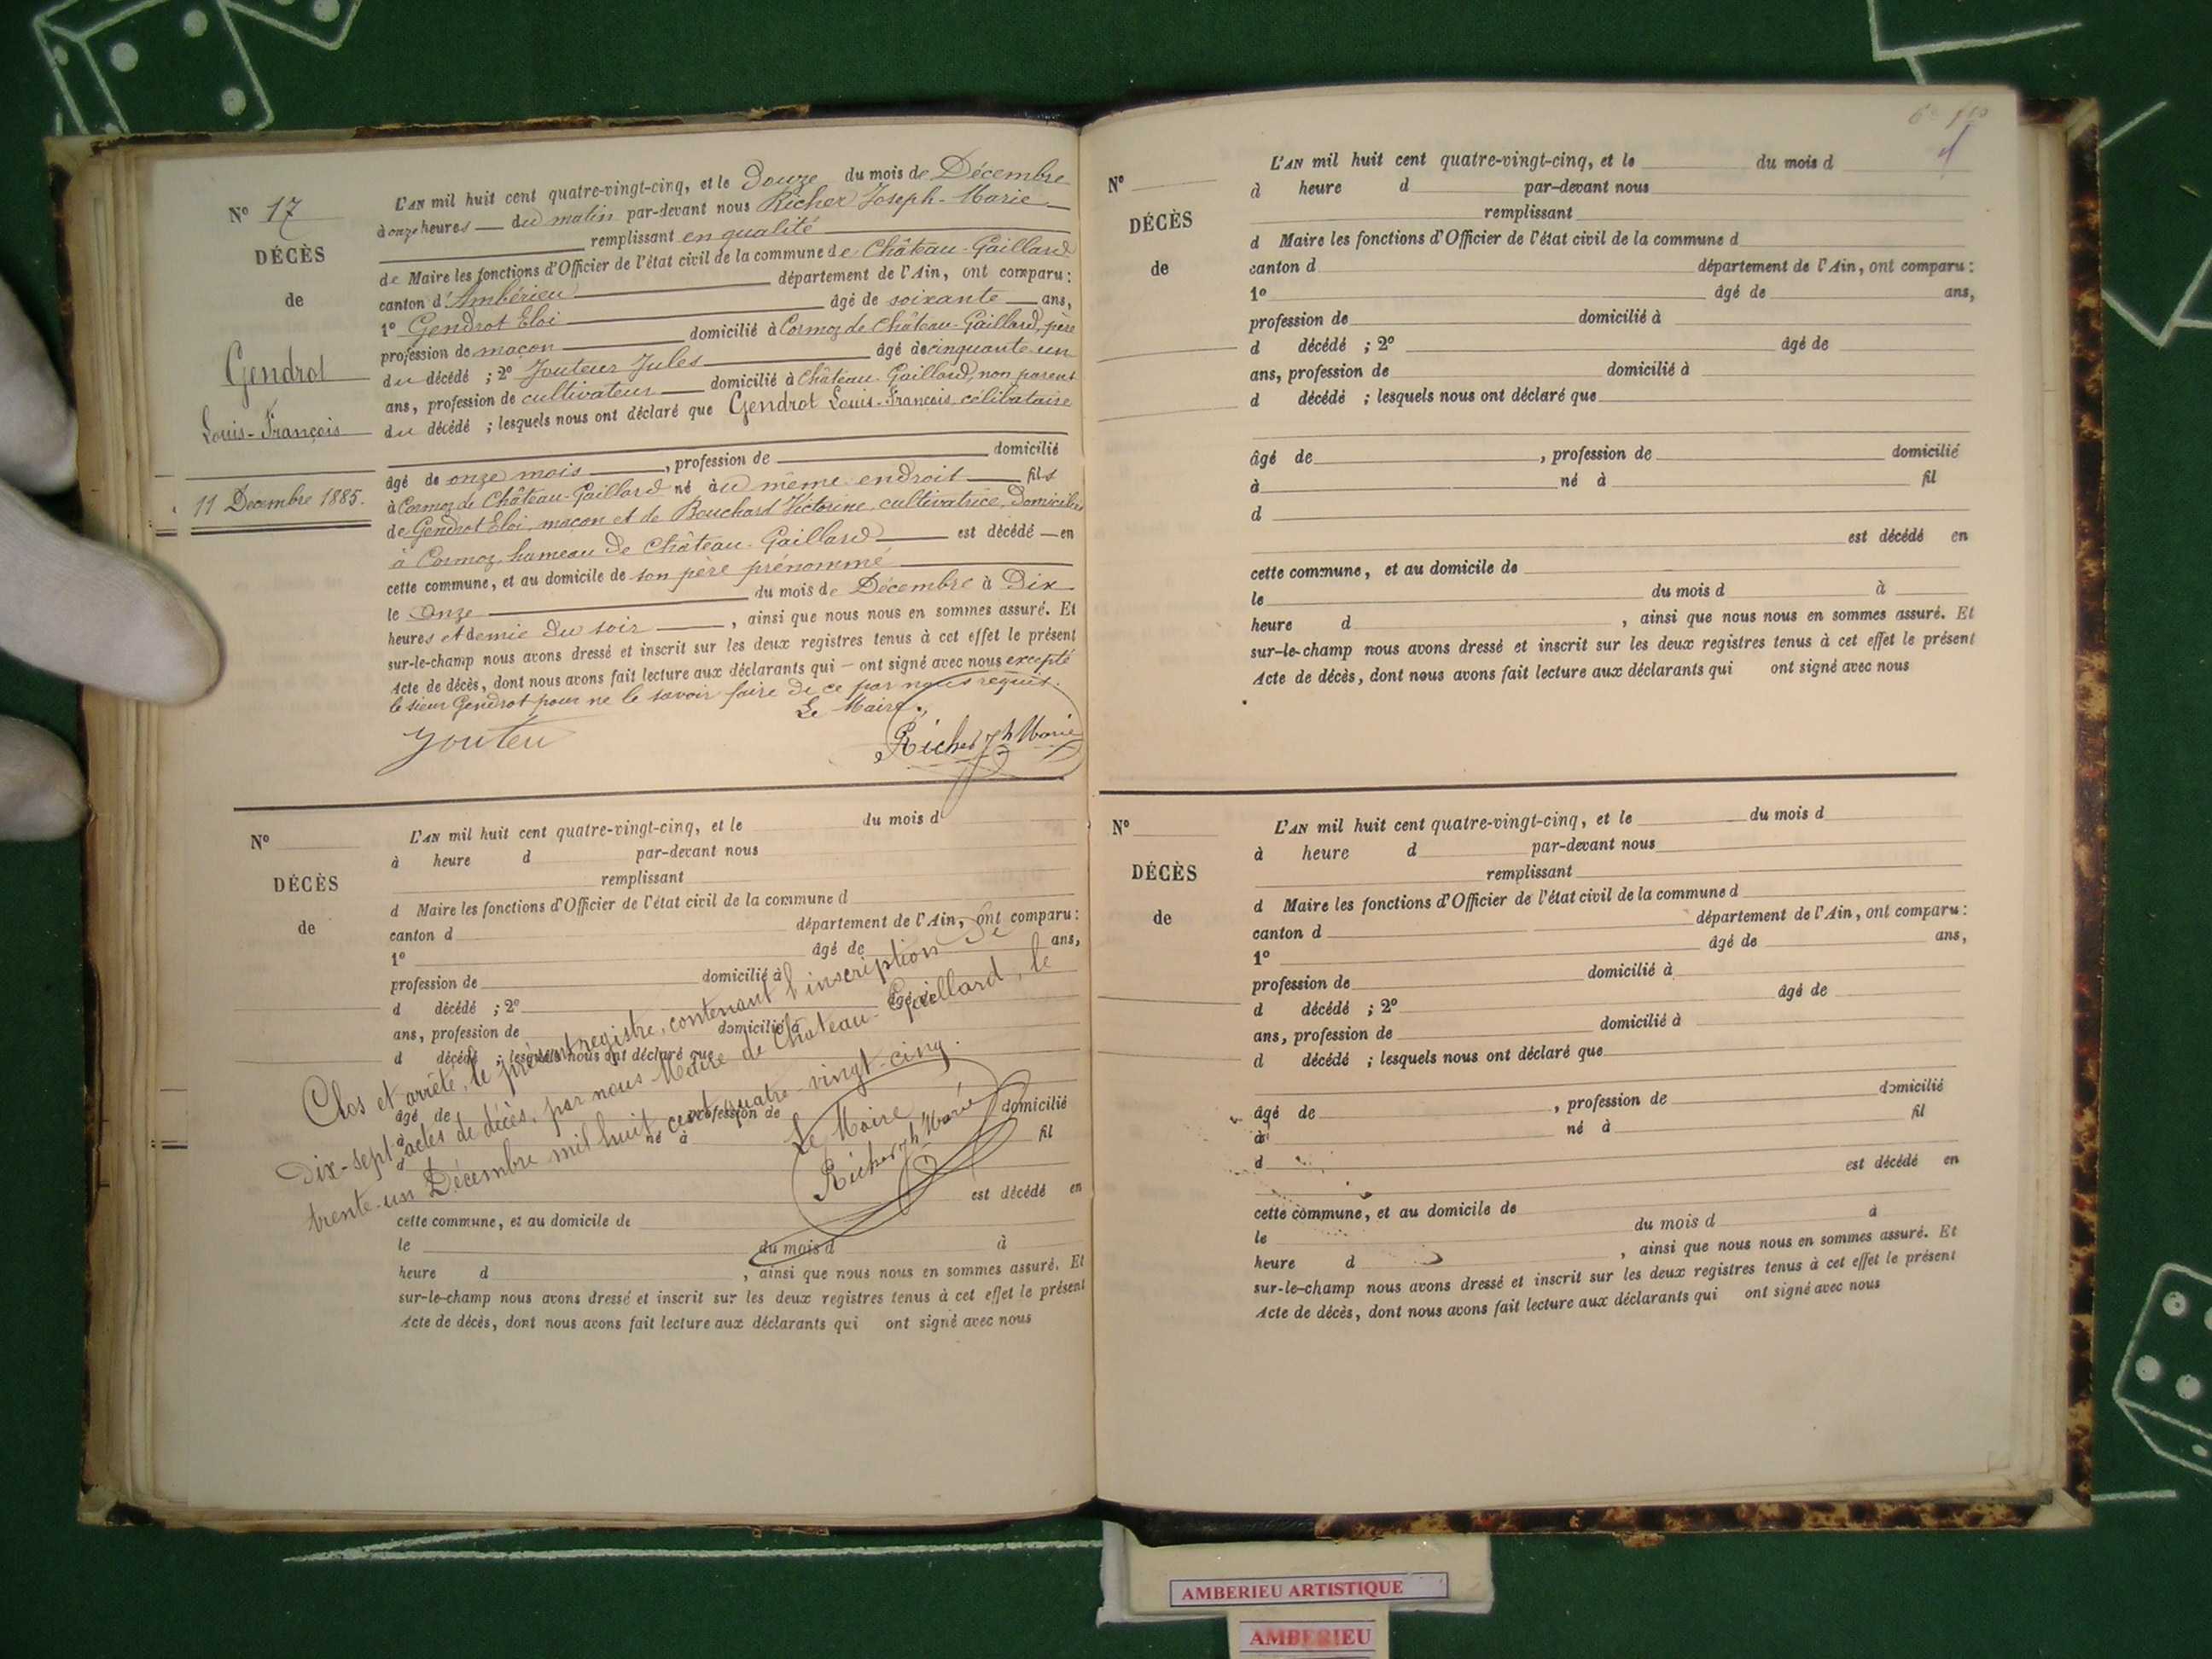 N° 17
DÉCÈS
de
Gendrot
Louis-François
11 Decembre 1885.
L'AN mil huit cent quatre-vingt-cinq, et le Douze du mois de Décembre
à onze heures du matin par-devant nous Richer Joseph-Marie
remplissant en qualité
de Maire les fonctions d'Officier de l'état civil de la commune de Château-Gaillard
canton d'Ambérieu département de l'Ain, ont comparu :
1° Gendrot Eloi âgé de soixante ans,
profession de maçon domicilié à Cormoz de Château-Gaillard, père
du décédé ; 2° Jouteur Jules âgé de cinquante-un
ans, profession de cultivateur domicilié à Château-Gaillard, non parent
du décédé ; lesquels nous ont déclaré que Gendrot Louis-François, célibataire
âgé de onze mois, profession de domicilié
à Cormoz de Château-Gaillard né au même endroit fils
de Gendrot Eloi, maçon et de Bouchard Victorine, cultivatrice, domiciliés
à Cormoz, hameau de Château-Gaillard est décédé en
cette commune, et au domicile de son père prénommé
le Onze du mois de Décembre à Dix
heures et demie du soir, ainsi que nous nous en sommes assuré. Et
sur-le-champ nous avons dressé et inscrit sur les deux registres tenus à cet effet le présent
Acte de décès, dont nous avons fait lecture aux déclarants qui — ont signé avec nous excepté
le sieur Gendrot pour ne le savoir faire de ce par nous requis.
Le Maire,
Jouteu
Richer Jh Marie
N°
DÉCÈS
de
L'AN mil huit cent quatre-vingt-cinq, et le du mois d
à heure d par-devant nous
remplissant
d Maire les fonctions d'Officier de l'état civil de la commune d
canton d département de l'Ain, ont comparu :
1° âgé de ans,
profession de domicilié à
d décédé ; 2° âgé de
ans, profession de domicilié à
d décédé ; lesquels nous ont déclaré que
âgé de profession de domicilié
à né à fil
d
est décédé en
cette commune, et au domicile de
le du mois d à
heure d , ainsi que nous nous en sommes assuré. Et
sur-le-champ nous avons dressé et inscrit sur les deux registres tenus à cet effet le présent
Acte de décès, dont nous avons fait lecture aux déclarants qui ont signé avec nous
Clos et arrêté, le présent registre, contenant l'inscription de
Dix-sept actes de décès, par nous Maire de Château-Gaillard, le
trente-un Décembre mil huit cent quatre-vingt-cinq.
Le Maire
Richer Jh Marie
N°
DÉCÈS
de
L'AN mil huit cent quatre-vingt-cinq, et le du mois d
à heure d par-devant nous
remplissant
d Maire les fonctions d'Officier de l'état civil de la commune d
canton d département de l'Ain, ont comparu :
1° âgé de ans,
profession de domicilié à
d décédé ; 2° âgé de
ans, profession de domicilié à
d décédé ; lesquels nous ont déclaré que
âgé de , profession de domicilié
à né à fil
d
est décédé en
cette commune, et au domicile de
le du mois d à
heure d , ainsi que nous nous en sommes assuré. Et
sur-le-champ nous avons dressé et inscrit sur les deux registres tenus à cet effet le présent
Acte de décès, dont nous avons fait lecture aux déclarants qui ont signé avec nous
N°
DÉCÈS
de
L'AN mil huit cent quatre-vingt-cinq, et le du mois d
à heure d par-devant nous
remplissant
d Maire les fonctions d'Officier de l'état civil de la commune d
canton d département de l'Ain, ont comparu :
1° âgé de ans,
profession de domicilié à
d décédé ; 2° âgé de
ans, profession de domicilié à
d décédé ; lesquels nous ont déclaré que
âgé de , profession de domicilié
à né à fil
d
est décédé en
cette commune, et au domicile de
le du mois d à
heure d , ainsi que nous nous en sommes assuré. Et
sur-le-champ nous avons dressé et inscrit sur les deux registres tenus à cet effet le présent
Acte de décès, dont nous avons fait lecture aux déclarants qui ont signé avec nous
AMBERIEU ARTISTIQUE
AMBERIEU